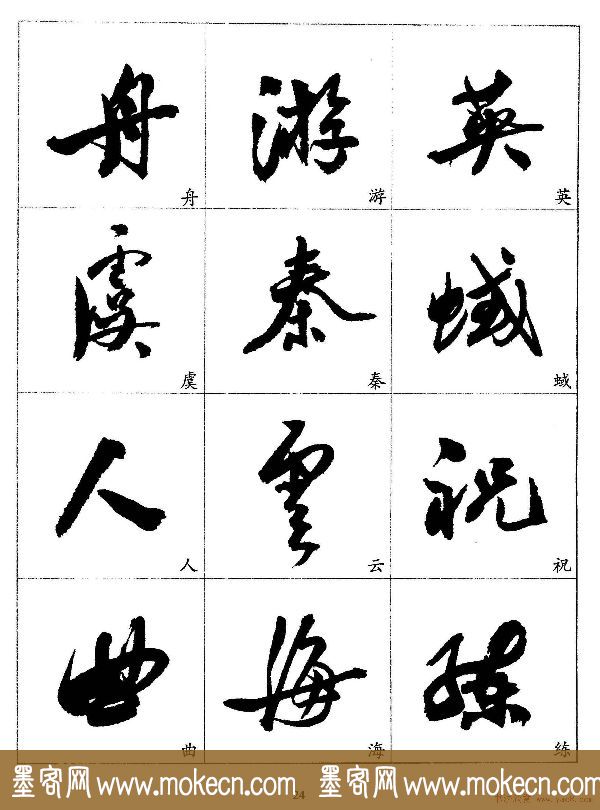 舟 游 英
舟 游 英
虞 秦 蜮
虞 秦 蜮
人 雲 祝
人 云 祝
曲 海 練
曲 海 练
24
墨客网 www.mokecn.com 墨客网 www.mokecn.com